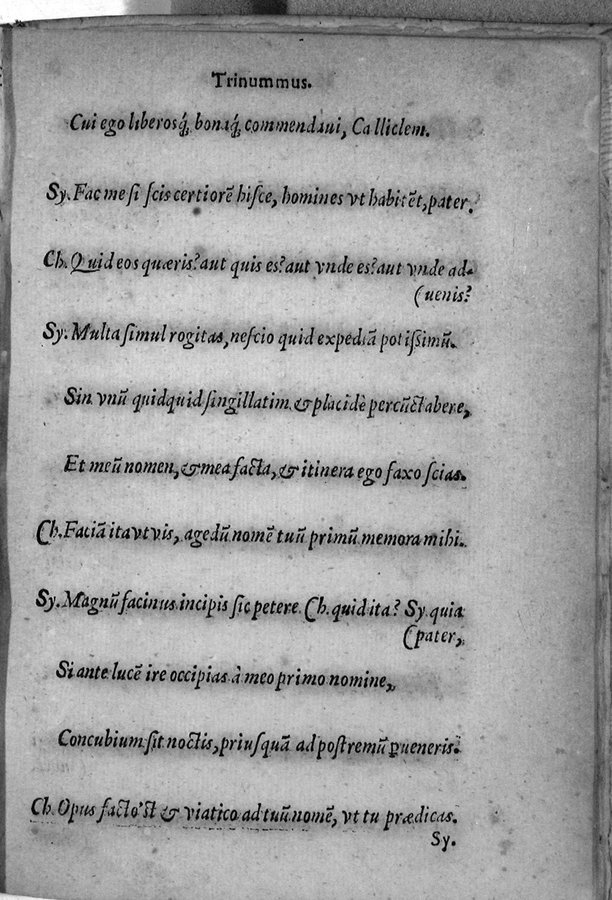 Trinummus.
Cui ego liberosq́, bonaq́, commendaui, Calliclem.
Sy. Fac me si scis certiorē hisce, homines vt habitēt, pater.
Ch. Quid eos quæris? aut quis es? aut vnde es? aut vnde ad-
(uenis?
Sy. Multa simul rogitas, nescio quid expediā potissimū.
Sin vnū quidquid singillatim & placidè percūctabere,
Et meū nomen, & mea facta, & itinera ego faxo scias.
Ch. Faciā ita vt vis, agedū nomē tuū primū memora mihi.
Sy. Magnū facinus incipis sic petere. Ch. quid ita? Sy. quia
(pater,
Si ante lucē ire occipias à meo primo nomine,
Concubium sit noctis, priusquā ad postremū ꝑueneris.
Ch. Opus facto'st & viatico ad tuū nomē, vt tu prædicas.
Sy.